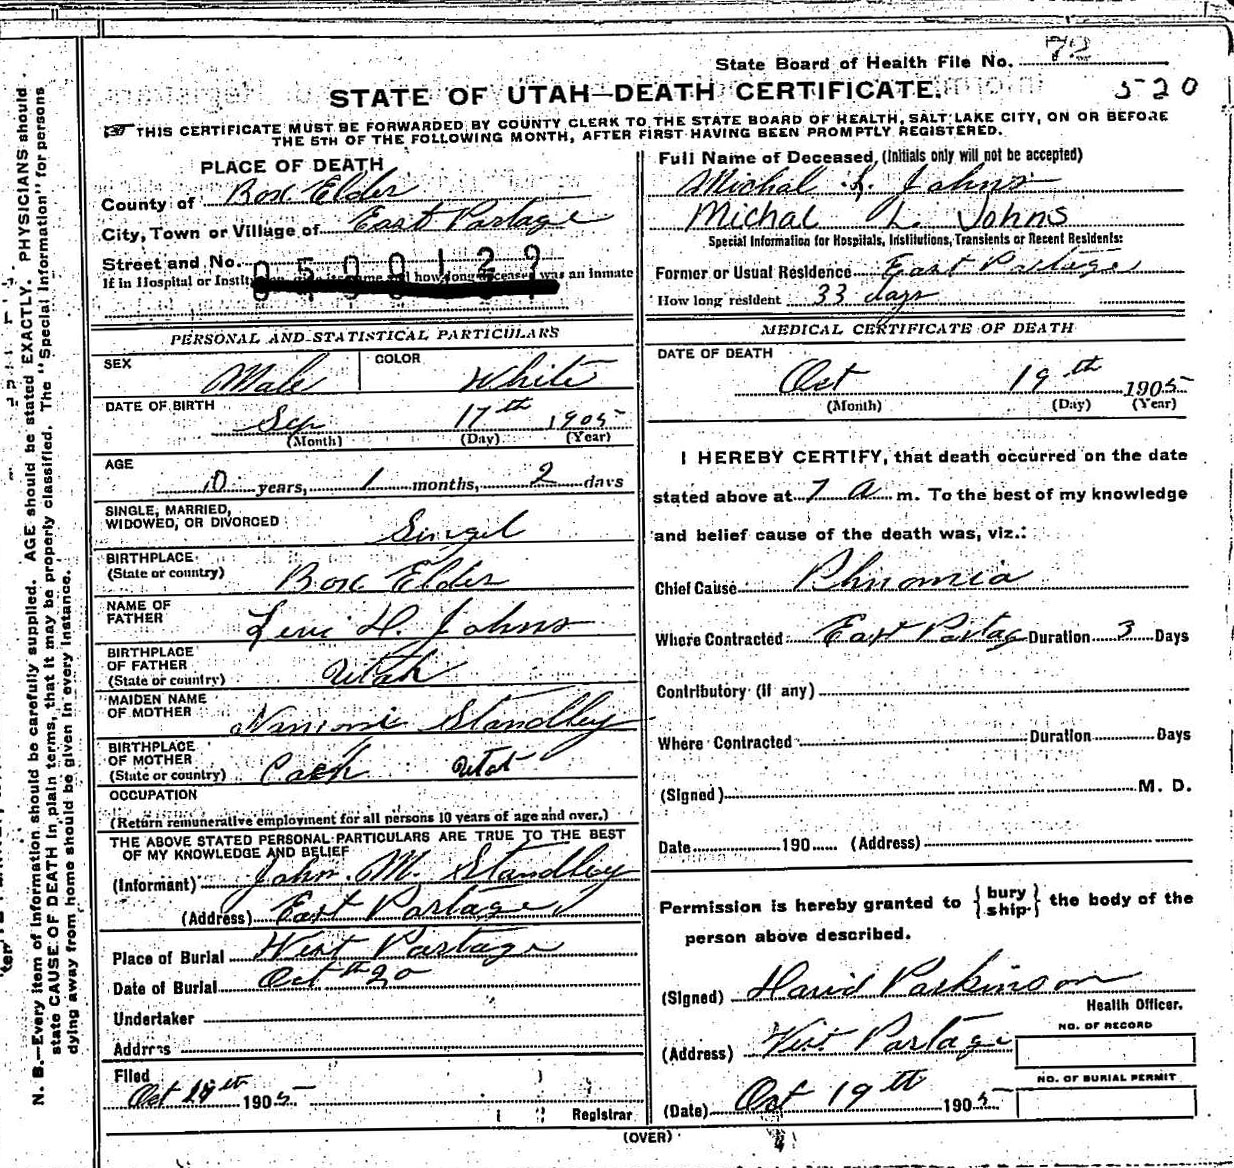 State Board of Health File No. 72
STATE OF UTAH—DEATH CERTIFICATE.
520
THIS CERTIFICATE MUST BE FORWARDED BY COUNTY CLERK TO THE STATE BOARD OF HEALTH, SALT LAKE CITY, ON OR BEFORE
THE 5TH OF THE FOLLOWING MONTH, AFTER FIRST HAVING BEEN PROMPTLY REGISTERED.
PLACE OF DEATH
County of Box Elder
City, Town or Village of East Portage
Street and No.
0500129
If in Hospital or how long deceased was an inmate
PERSONAL AND STATISTICAL PARTICULARS
SEX Male COLOR White
DATE OF BIRTH Sep 17th 1905
(Month) (Day) (Year)
AGE
0 years, 1 months, 2 days
SINGLE, MARRIED,
WIDOWED, OR DIVORCED Singel
BIRTHPLACE
(State or country) Box Elder
NAME OF
FATHER Levi H. Johns
BIRTHPLACE
OF FATHER
(State or country) Utah
MAIDEN NAME
OF MOTHER Standley
BIRTHPLACE
OF MOTHER
(State or country) Cash Utah
OCCUPATION
(Return remunerative employment for all persons 10 years of age and over.)
THE ABOVE STATED PERSONAL PARTICULARS ARE TRUE TO THE BEST
OF MY KNOWLEDGE AND BELIEF
(Informant) John M. Standley
(Address) East Portage
Place of Burial West Portage
Date of Burial Oct th 20
Undertaker
Address
Filed
Oct 19th 1905
Registrar
Full Name of Deceased, (Initials only will not be accepted)
Michal L. Johns
Michal L. Johns
Special Information for Hospitals, Institutions, Transients or Recent Residents:
Former or Usual Residence East Portage
How long resident 33 days
MEDICAL CERTIFICATE OF DEATH
DATE OF DEATH
Oct 19th 1905
(Month) (Day) (Year)
I HEREBY CERTIFY, that death occurred on the date
stated above at 7 a m. To the best of my knowledge
and belief cause of the death was, viz.:
Chief Cause Phnomia
Where Contracted East Portag Duration 3 Days
Contributory (if any)
Where Contracted Duration Days
(Signed) M. D.
Date 190 (Address)
Permission is hereby granted to { bury
ship } the body of the
person above described.
(Signed) David Parkinson
Health Officer.
(Address) West Portage
NO. OF RECORD
NO. OF BURIAL PERMIT
(Date) Oct 19th 1905
(OVER)
N. B.—Every item of information should be carefully supplied. AGE should be stated EXACTLY. PHYSICIANS should
state CAUSE OF DEATH in plain terms, that it may be properly classified. The "Special Information" for persons
dying away from home should be given in every instance.